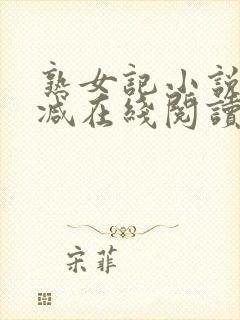 熟女記小說
減在綫閱讀
宋菲